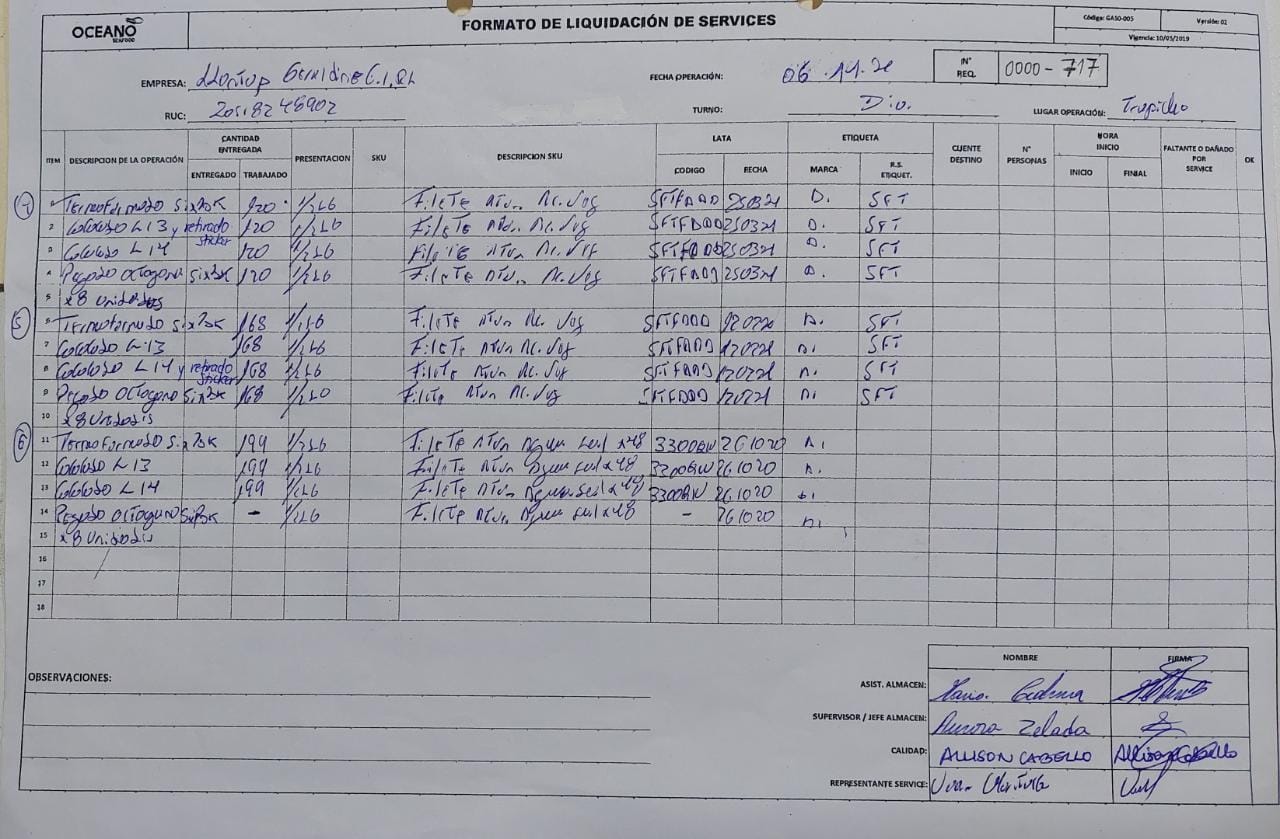 OCEANO
SEAFOOD
FORMATO DE LIQUIDACIÓN DE SERVICES
Código: GASO-005
Versión: 02
Vigencia: 10/05/2019
EMPRESA: E.I.RL
FECHA OPERACIÓN: 06.11.21
N° REQ. 0000-717
RUC: 20518245902
TURNO: Dia.
LUGAR OPERACIÓN: Trapiche
ITEM DESCRIPCION DE LA OPERACIÓN CANTIDAD ENTREGADA ENTREGADO TRABAJADO PRESENTACION SKU DESCRIPCION SKU LATA CODIGO FECHA ETIQUETA MARCA R.S. ETIQUET. CLIENTE DESTINO N° PERSONAS HORA INICIO INICIO FINIAL FALTANTE O DAÑADO POR SERVICE OK
4 1 Termoformado sixpak 120 1/2 Lb Filete Atun Ac. Veg SFTFADD 250321 D. SFT
2 Colocado L 13 y retirado sticker 120 1/2 Lb Filete Atun Ac. Veg SFTFDDD 250321 D. SFT
3 Colocado L 14 120 1/2 Lb Filete Atun Ac. Veg SFTFADD 250321 D. SFT
4 Pegado octogono sixpak 120 1/2 Lb Filete Atun Ac. Veg SFTFADD 250321 D. SFT
5 x 8 unidades
5 6 Termoformado sixpak 168 1/2 Lb Filete Atun Ac. Veg SFTFADD 120721 A. SFT
7 Colocado L 13 168 1/2 Lb Filete Atun Ac. Veg SFTFADD 120721 A. SFT
8 Colocado L 14 y retirado sticker 168 1/2 Lb Filete Atun Ac. Veg SFTFADD 120721 A. SFT
9 Pegado octogono sixpak 168 1/2 Lb Filete Atun Ac. Veg SFTFDDD 120721 A. SFT
10 x 8 unidades
6 11 Termoformado sixpak 199 1/2 Lb Filete Atun Agua Sal x48 3300AW 261020 A.
12 Colocado L 13 199 1/2 Lb Filete Atun Agua Sal x48 3300AW 261020 A.
13 Colocado L 14 199 1/2 Lb Filete Atun Agua Sal x48 3300AW 261020 A.
14 Pegado octogono sixpak - 1/2 Lb Filete Atun Agua Sal x48 - 261020 A.
15 x 8 unidades
16
17
18
OBSERVACIONES:
NOMBRE FIRMA
ASIST. ALMACEN: Mario
SUPERVISOR / JEFE ALMACEN: Aurora Zelada
CALIDAD: ALLISON CABELLO Allison Cabello
REPRESENTANTE SERVICE: